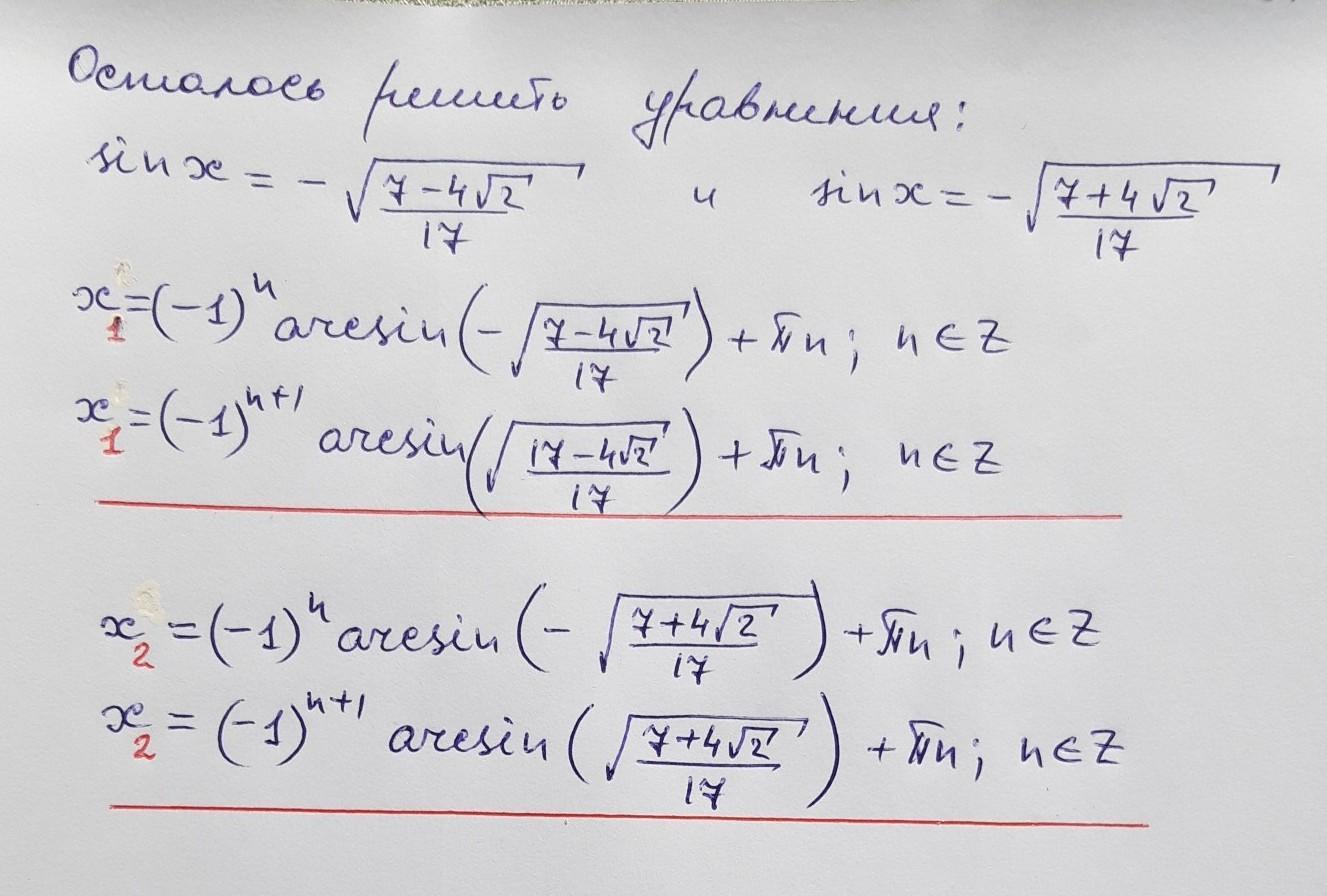 Осталось решить уравнения:
sin x = -√((7-4√2)/17) и sin x = -√((7+4√2)/17)
x₁=(-1)ⁿ arcsin(-√((7-4√2)/17)) + πn; n∈Z
x₁=(-1)ⁿ⁺¹ arcsin(√((17-4√2)/17)) + πn; n∈Z
x₂=(-1)ⁿ arcsin(-√((7+4√2)/17)) + πn; n∈Z
x₂=(-1)ⁿ⁺¹ arcsin(√((7+4√2)/17)) + πn; n∈Z